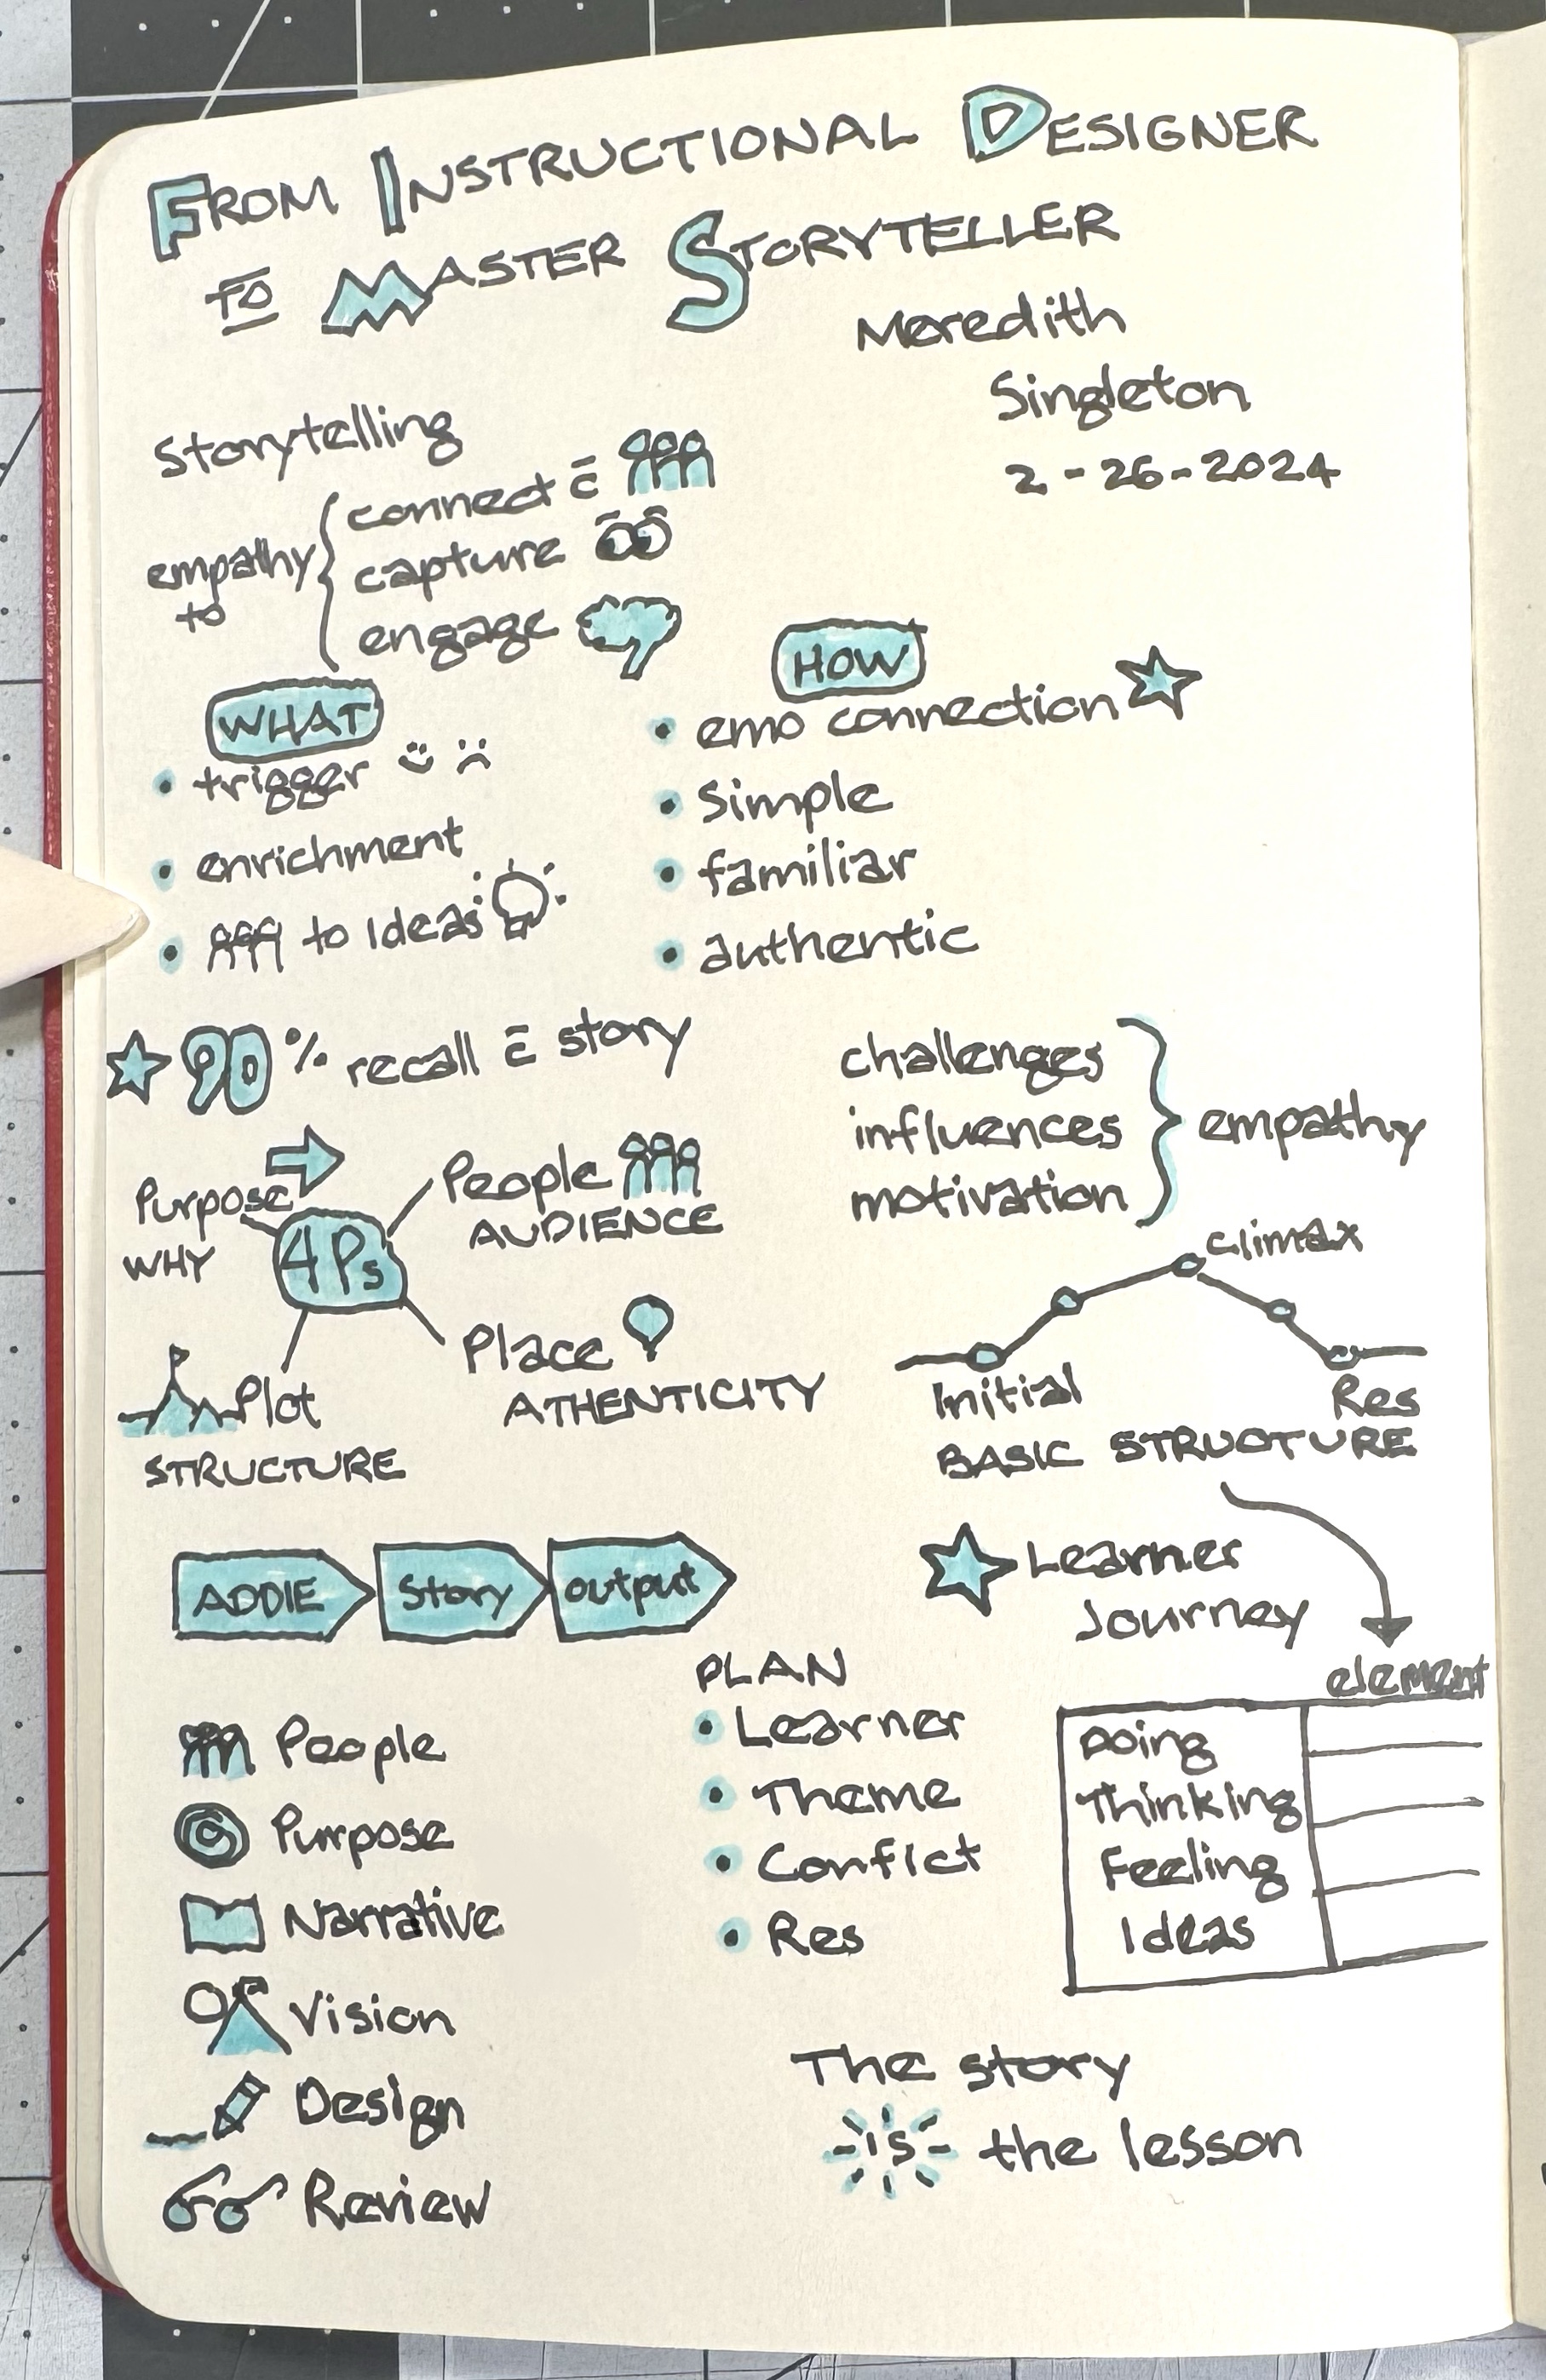 FROM INSTRUCTIONAL DESIGNER
TO MASTER STORYTELLER
Meredith
Singleton
2-26-2024
Storytelling
empathy
to
connect c̄
capture
engage
WHAT
• trigger
• enrichment
• to Ideas
HOW
• emo connection
• simple
• familiar
• authentic
90% recall c̄ story
challenges
influences
motivation
empathy
4Ps
Purpose
WHY
People
AUDIENCE
Plot
STRUCTURE
Place
ATHENTICITY
climax
Initial
Res
BASIC STRUCTURE
ADDIE
Story
output
Learner
Journey
element
Doing
Thinking
Feeling
Ideas
People
Purpose
Narrative
Vision
Design
Review
PLAN
• Learner
• Theme
• Confict
• Res
The story
is the lesson